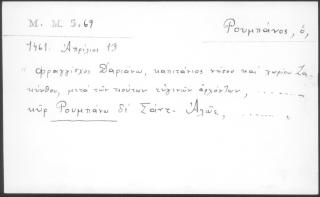 M. M. 5.69
Ρουμπάνος, ὁ,
1461. Ἀπρίλιος 13
" φραγγίσκος Δαριανω, καπιτάνιος νήσου καὶ χωρίου Ζα-
κύνθου, μετὰ τῶν τοιούτων εὐγενῶν ἀρχόντων,
κὺρ Ρουμπανω δὲ Σάντ. Ἀλαΐε,